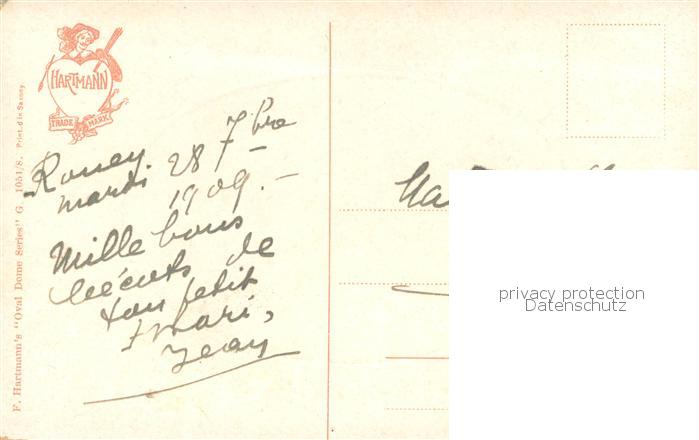 HARTMANN
TRADE MARK
F. Hartmann's "Oval Dome Series" G. 1051/8. Printed in Saxony
Rouen
mardi 28 7bre
1909.—
Mille bons
bécots de
ton petit
mari,
Jean
privacy protection
Datenschutz